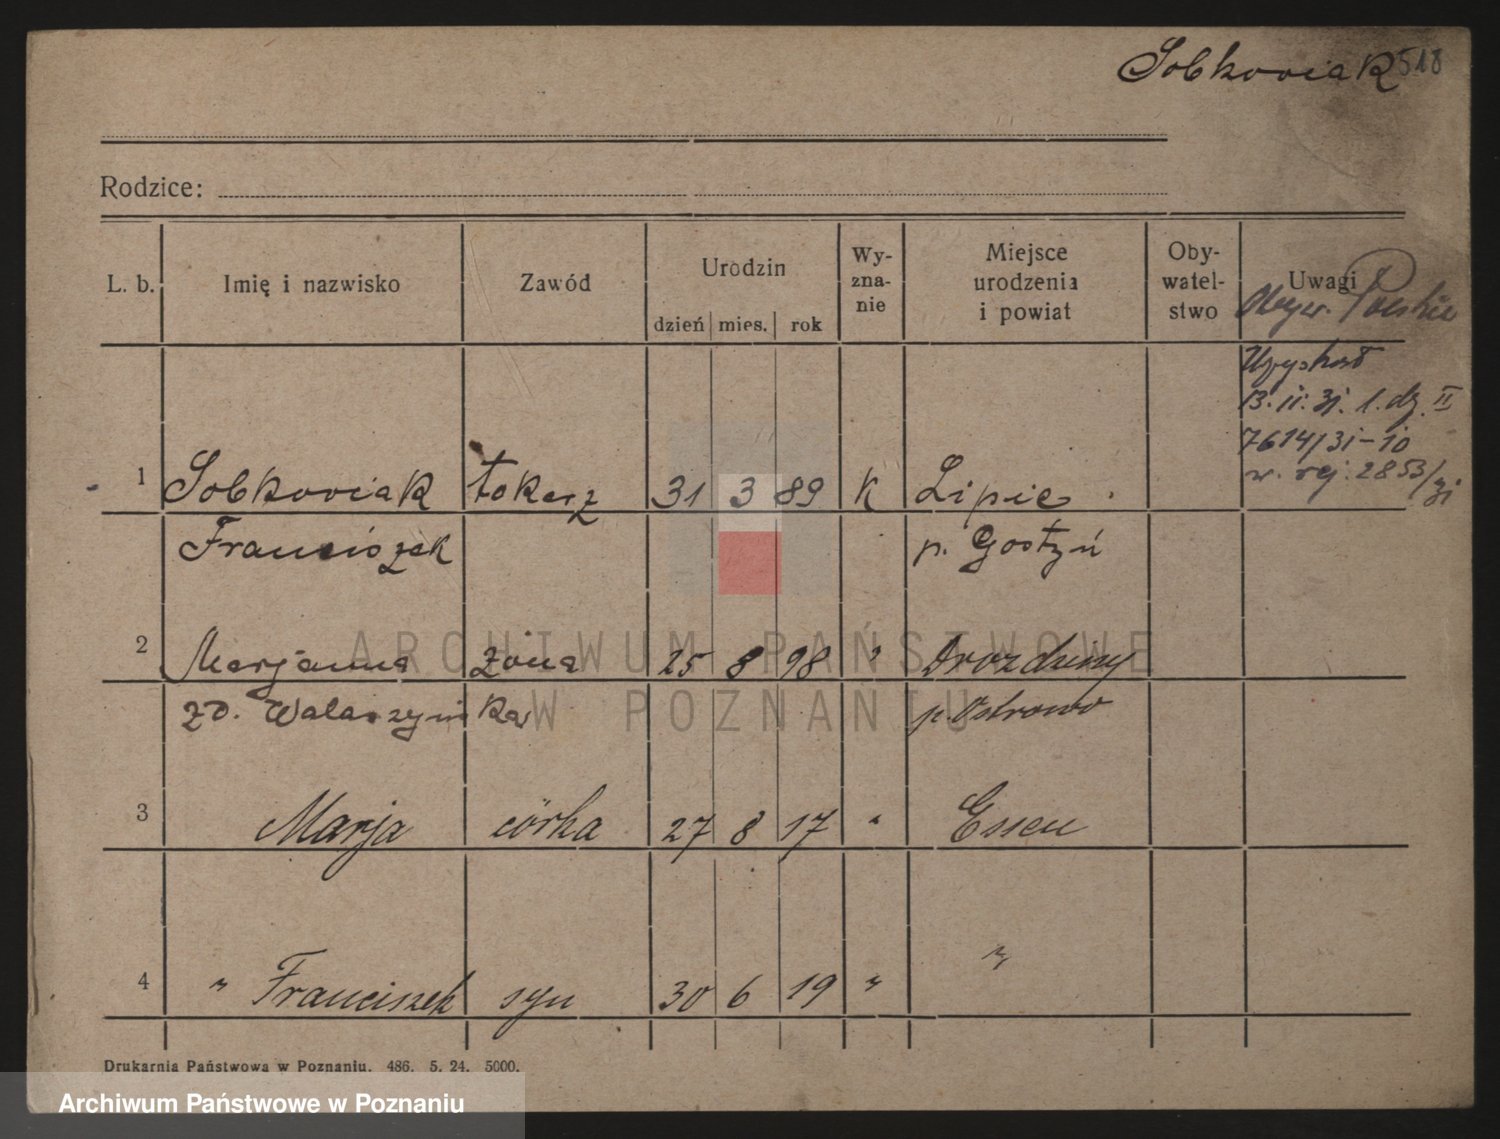 Sobkowiak 518
Rodzice:
L. b. Imię i nazwisko Zawód Urodzin dzień mies. rok Wy-zna-nie Miejsce urodzenia i powiat Oby-watel-stwo Uwagi
Obyw. Polskie
Uzyskał
13. 11. 31. l. dz. II
7614/31-10
w. rej. 2853/31
1 Sobkowiak tokarz 31 3 89 k Lipie
Franciszek p. Gostyń
2 Marjanna żona 25 8 98 " Drozdziny
zd. Walaszyńska p. Ostrowo
3 Marja córka 27 8 17 " Essen
4 " Franciszek syn 30 6 19 " "
Drukarnia Państwowa w Poznaniu. 486. 5. 24. 5000.
ARCHIWUM PAŃSTWOWE
W POZNANIU
Archiwum Państwowe w Poznaniu